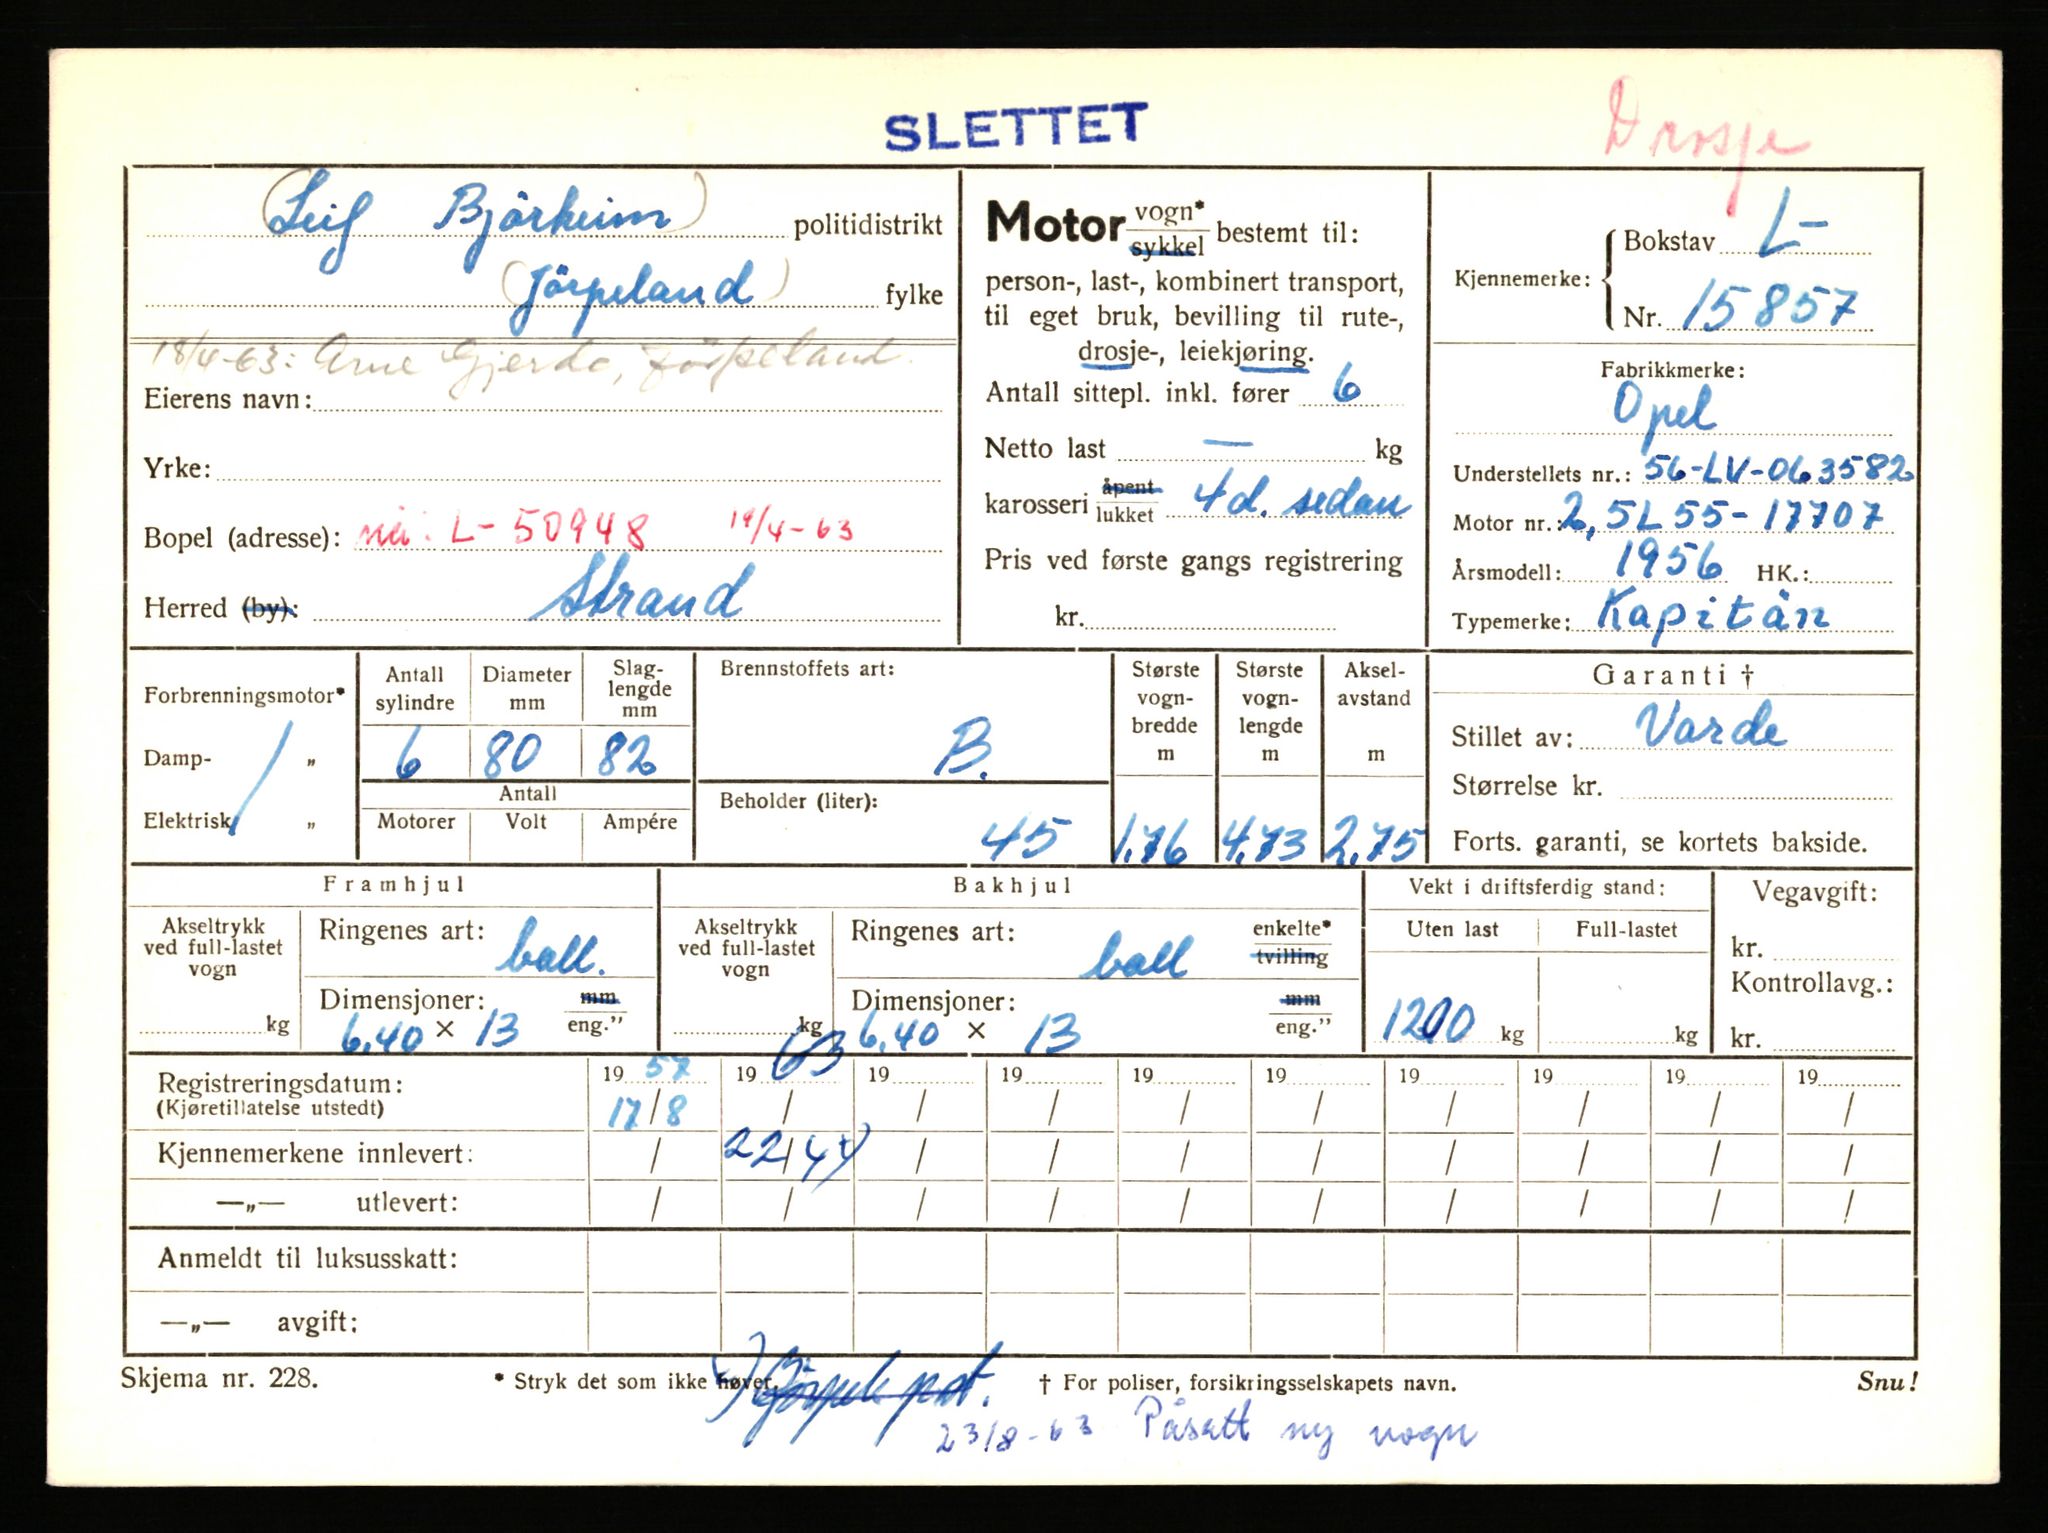 SLETTET
Drosje
(Leif Bjørheim) politidistrikt
(Jörpeland) fylke
18/4-63: Arne Gjerde, Jörpeland.
Eierens navn:
Yrke:
Bopel (adresse): nå: L-50948 19/4-63
Herred (by): Strand
Motor vogn* sykkel bestemt til:
person-, last-, kombinert transport,
til eget bruk, bevilling til rute-,
drosje-, leiekjøring.
Antall sittepl. inkl. fører 6
Netto last — kg
karosseri åpent lukket 4d. sedan
Pris ved første gangs registrering
kr.
Kjennemerke: Bokstav L-
Nr. 15857
Fabrikkmerke:
Opel
Understellets nr.: 56-LV-063582
Motor nr.: 2,5L 55-17707
Årsmodell: 1956 HK.:
Typemerke: Kapitän
Forbrenningsmotor*
Damp- "
Elektrisk "
Antall sylindre 6
Diameter mm 80
Slaglengde mm 82
Antall
Motorer Volt Ampére
Brennstoffets art:
B.
Beholder (liter):
45
Største vognbredde m 1.76
Største vognlengde m 4.73
Akselavstand m 2.75
Garanti †
Stillet av: Varde
Størrelse kr.
Forts. garanti, se kortets bakside.
Framhjul
Akseltrykk ved full-lastet vogn kg
Ringenes art: ball.
Dimensjoner: mm eng."
6.40 × 13
Bakhjul
Akseltrykk ved full-lastet vogn kg
Ringenes art: ball enkelte* tvilling
Dimensjoner: mm eng."
6.40 × 13
Vekt i driftsferdig stand:
Uten last Full-lastet
1200 kg kg
Vegavgift:
kr.
Kontrollavg.:
kr.
Registreringsdatum: 19 57 19 63 19 19 19 19 19 19 19 19
(Kjøretillatelse utstedt) 17/8 / / / / / / / / /
Kjennemerkene innlevert: / 22/4 4) / / / / / / / /
—„— utlevert: / / / / / / / / / /
Anmeldt til luksusskatt:
—„— avgift:
Skjema nr. 228.
* Stryk det som ikke høver.
† For poliser, forsikringsselskapets navn.
Snu!
23/8-63 Påsatt ny vogn